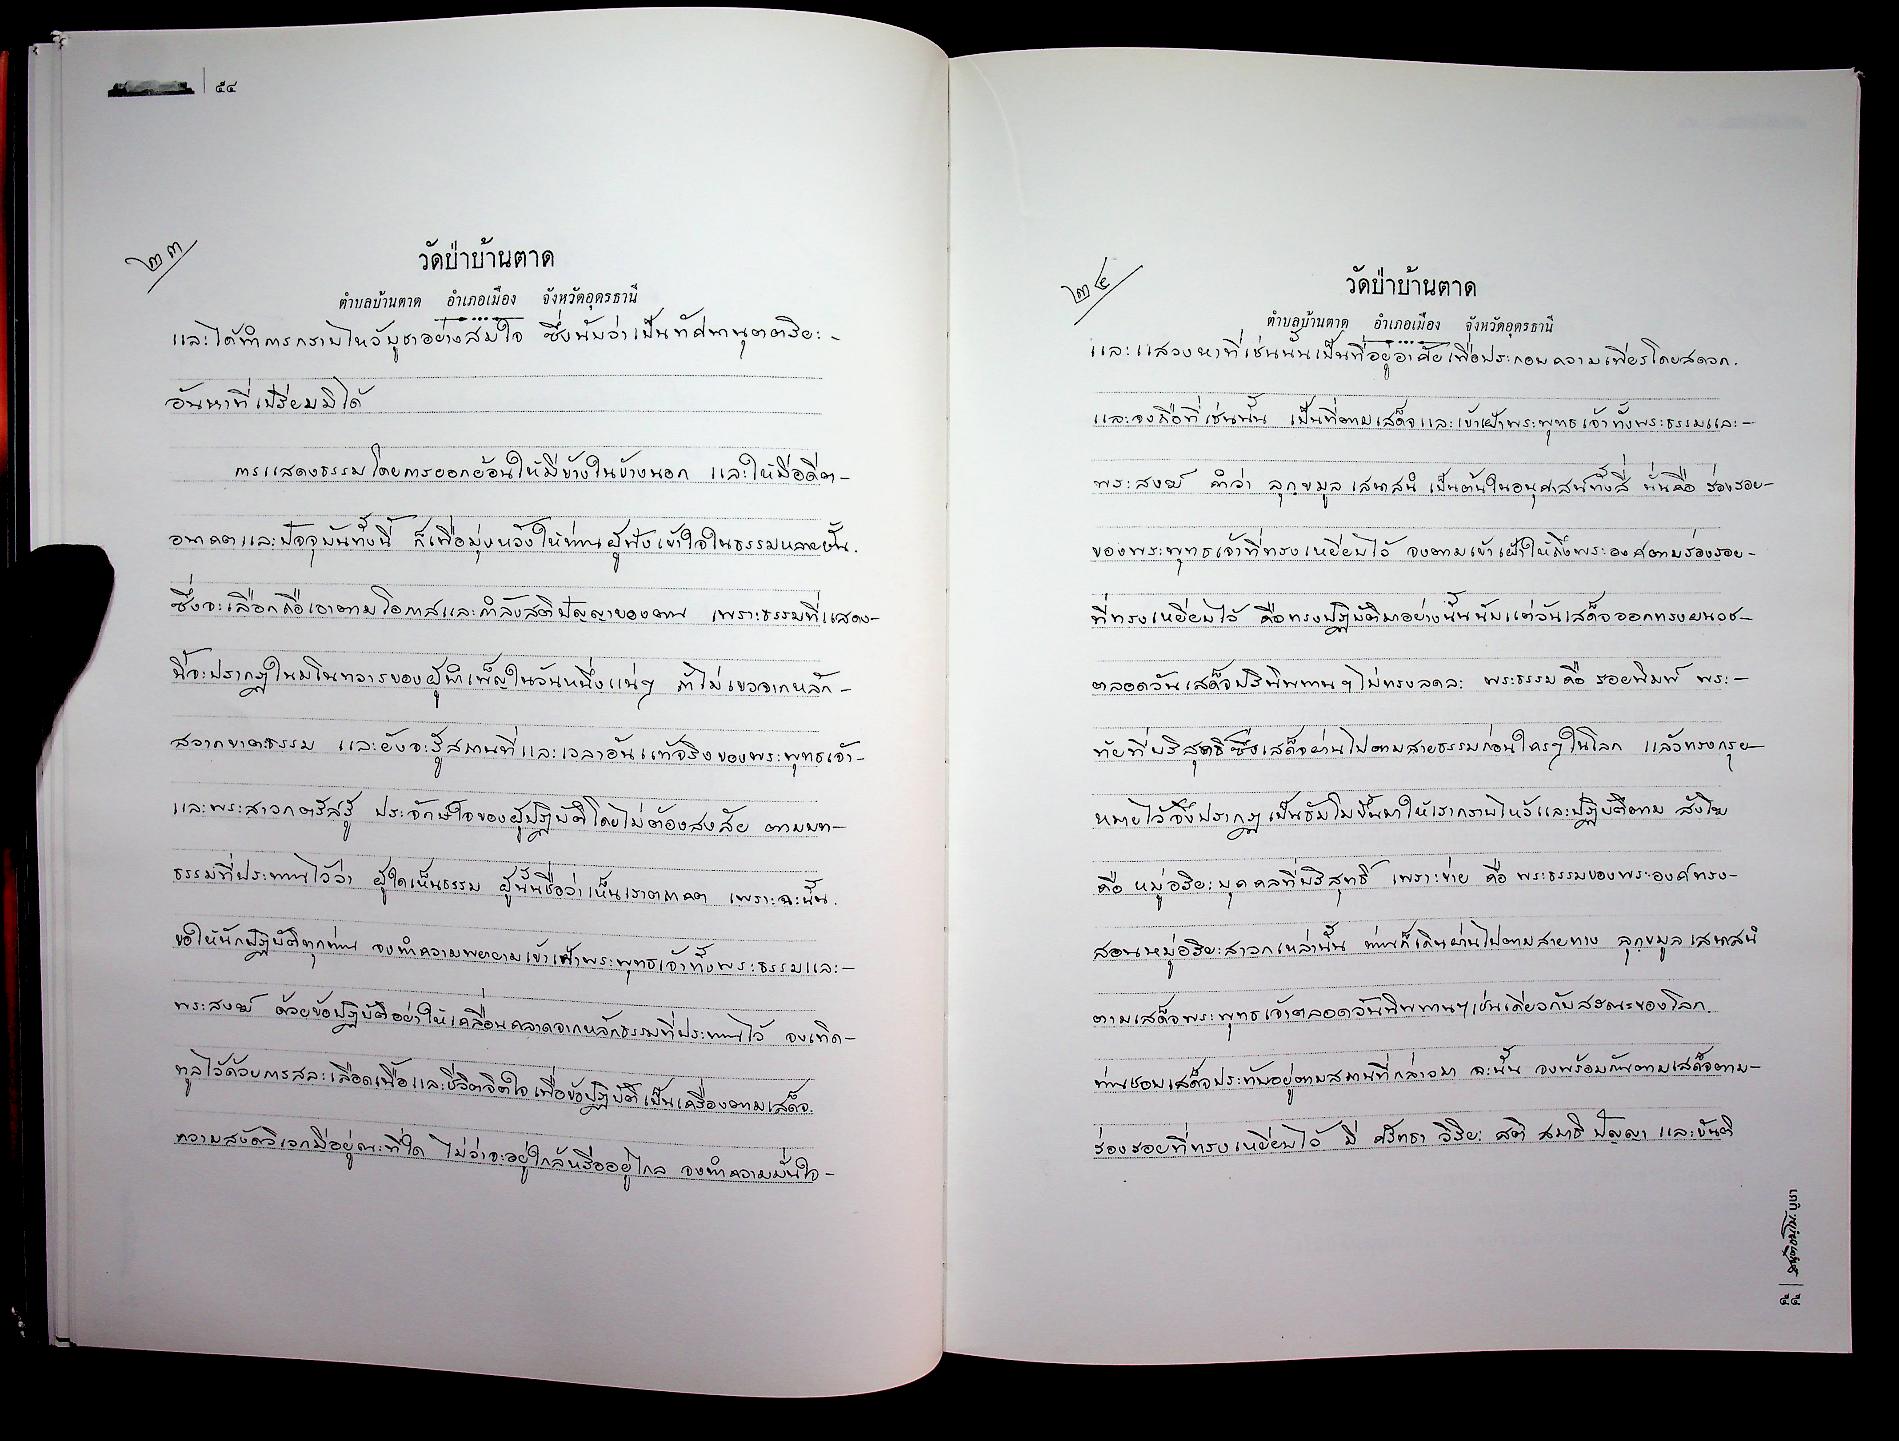 ๕๔
๒๓
วัดป่าบ้านตาด
ตำบลบ้านตาด อำเภอเมือง จังหวัดอุดรธานี
และได้ทำการกราบไหว้บูชาอย่างสมใจ ซึ่งนับว่าเป็นทัศนานุตตาริยะ-
อันหาที่เปรียบมิได้
การแสดงธรรมโดยการยอกย้อนให้มีข้างในข้างนอก และให้มีอดีต-
อนาคตและปัจจุบันทั้งนี้ ก็เพื่อมุ่งหวังให้ท่านผู้ฟังเข้าใจในธรรมหลายชั้น.
ซึ่งจะเลือกถือเอาตามโอกาสและกำลังสติปัญญาของตน เพราะธรรมที่แสดง-
นี้จะปรากฏในมโนทวารของผู้บำเพ็ญในวันหนึ่งแน่ๆ ถ้าไม่เขวจากหลัก-
สวากขาตะธรรม และยังจะรู้สถานที่และเวลาอันแท้จริงของพระพุทธเจ้า-
และพระสาวกตรัสรู้ ประจักษ์ใจของผู้ปฏิบัติโดยไม่ต้องสงสัย ตามบท-
ธรรมที่ประทานไว้ว่า ผู้ใดเห็นธรรม ผู้นั้นชื่อว่าเห็นเราตถาคต เพราะฉะนั้น.
ขอให้นักปฏิบัติทุกท่าน จงทำความพยายามเข้าเฝ้าพระพุทธเจ้าทั้งพระธรรมและ-
พระสงฆ์ ด้วยข้อปฏิบัติอย่าให้เคลื่อนคลาดจากหลักธรรมที่ประทานไว้ จงเทิด-
ทูลไว้ด้วยการสละเลือดเนื้อและชีวิตจิตใจ เพื่อข้อปฏิบัติเป็นเครื่องตามเสด็จ.
ความสงัดวิเวกมีอยู่ณะที่ใด ไม่ว่าจะอยู่ใกล้หรืออยู่ไกล จงทำความมั่นใจ-
๒๔
วัดป่าบ้านตาด
ตำบลบ้านตาด อำเภอเมือง จังหวัดอุดรธานี
และแสวงหาที่เช่นนั้นเป็นที่อยู่อาศัยเพื่อประกอบความเพียรโดยสดวก.
และจงถือที่เช่นนั้น เป็นที่ตามเสด็จและเข้าเฝ้าพระพุทธเจ้าทั้งพระธรรมและ-
พระสงฆ์ คำว่า ลุกขมูลเสนาสนํ เป็นต้นในอนุศาสน์ทั้งสี่ นั่นคือ ร่องรอย-
ของพระพุทธเจ้าที่ทรงเหยียบไว้ จงตามเข้าเฝ้าให้ถึงพระองค์ตามร่องรอย-
ที่ทรงเหยียบไว้ คือทรงปฏิบัติมาอย่างนั้นนับแต่วันเสด็จออกทรงผนวช-
ตลอดวันเสด็จปรินิพพานฯไม่ทรงลดละ พระธรรมคือ รอยพิมพ์ พระ-
ทัยที่บริสุทธิ์ซึ่งเสด็จผ่านไปตามสายธรรมก่อนใครๆในโลก แล้วทรงกรุย-
หมายไว้จึงปรากฏเป็นธัมโมขึ้นมาให้เรากราบไหว้และปฏิบัติตาม สังโฆ
คือ หมู่อริยะบุคคลที่บริสุทธิ์ เพราะข่าย คือ พระธรรมของพระองค์ทรง-
สอนหมู่อริยะสาวกเหล่านั้น ท่านก็เดินผ่านไปตามสายทาง ลุกขมูลเสนาสนํ
ตามเสด็จพระพุทธเจ้าตลอดวันนิพพานฯเช่นเดียวกับสรณะของโลก.
ท่านชอบเสด็จประทับอยู่ตามสถานที่กล่าวมา ฉะนั้น จงพร้อมกันตามเสด็จตาม-
ร่องรอยที่ทรงเหยียบไว้ มี ศรัทธา วิริยะ สติ สมาธิ ปัญญา และขันติ
๕๕